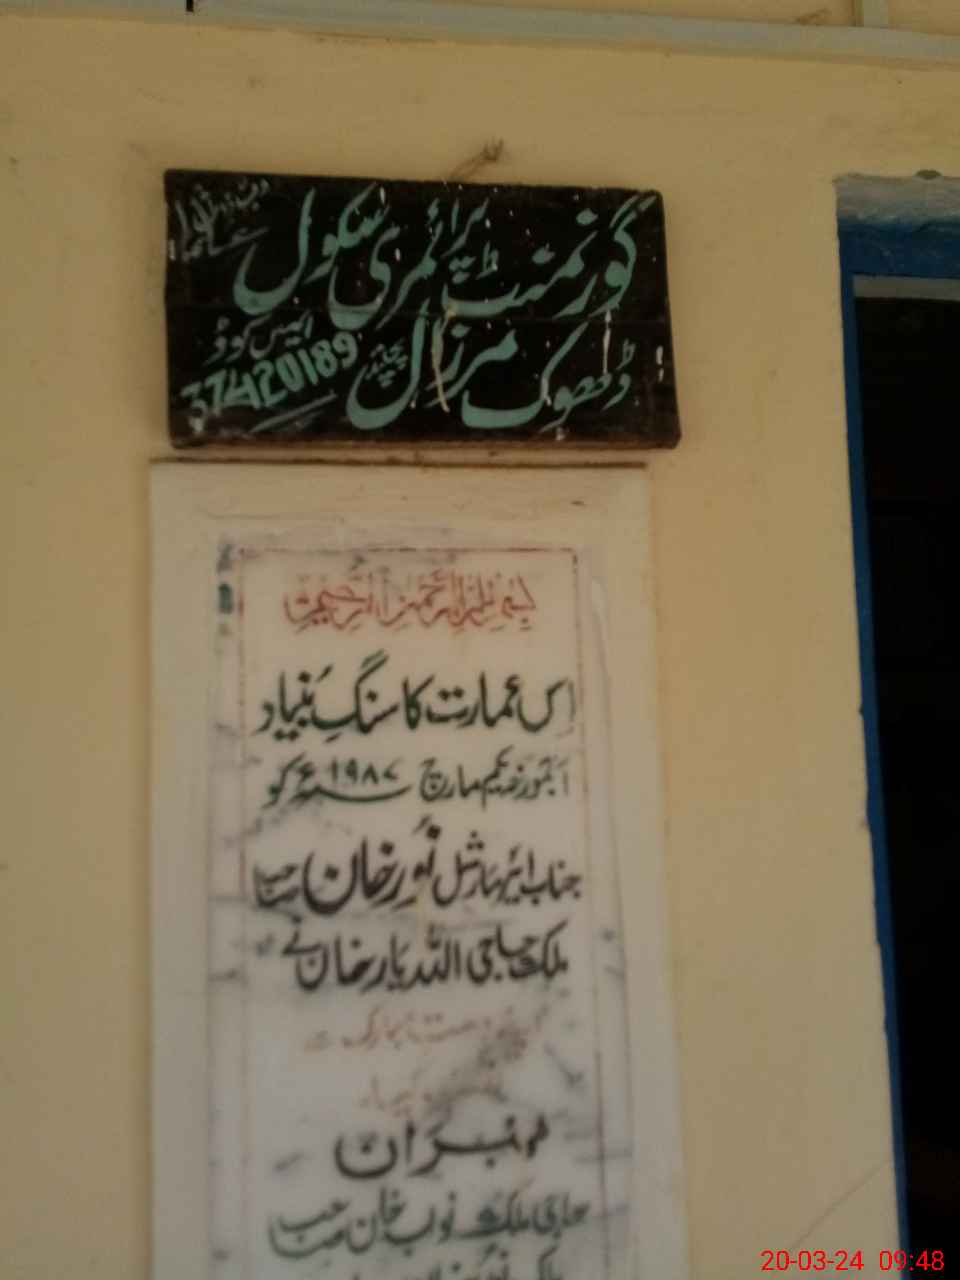 گورنمنٹ پرائمری سکول
ڈھوک مرزال
ایمیس کوڈ
37420189
بسم اللہ الرحمن الرحیم
اِس عمارت کا سنگِ بُنیاد
آج مورخہ یکم مارچ ۱۹۸۷ء کو
جناب ائیر مارشل نُور خان صاحب
ملک حاجی اللہ یار خان نے
اپنے دست مبارک سے
ممبران
حاجی ملک نواب خان صاحب
20-03-24 09:48